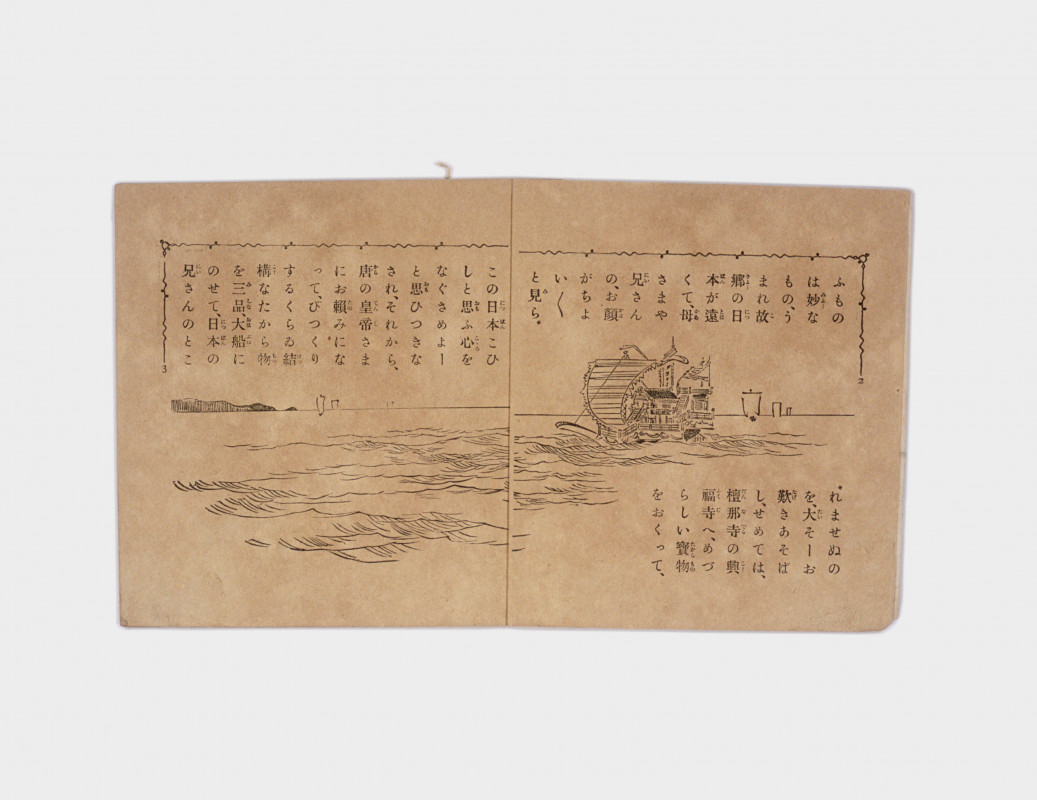 ふもの
は妙な
もの、う
まれ故
郷の日
本が遠
くて、母
さまや
兄さん
の、お顔
がちよ
い〳〵
と見ら。
2
れませぬの
を、大そーお
歎きあそば
し、せめては、
檀那寺の興
福寺へ、めづ
らしい寳物
をおくって、
この日本こひ
しと思ふ心を
なぐさめよー
と思ひつきな
され、それから、
唐の皇帝さま
にお頼みにな
って、びつくり
するくらゐ結
構なたから物
を三品、大船に
のせて、日本の
兄さんのとこ
3